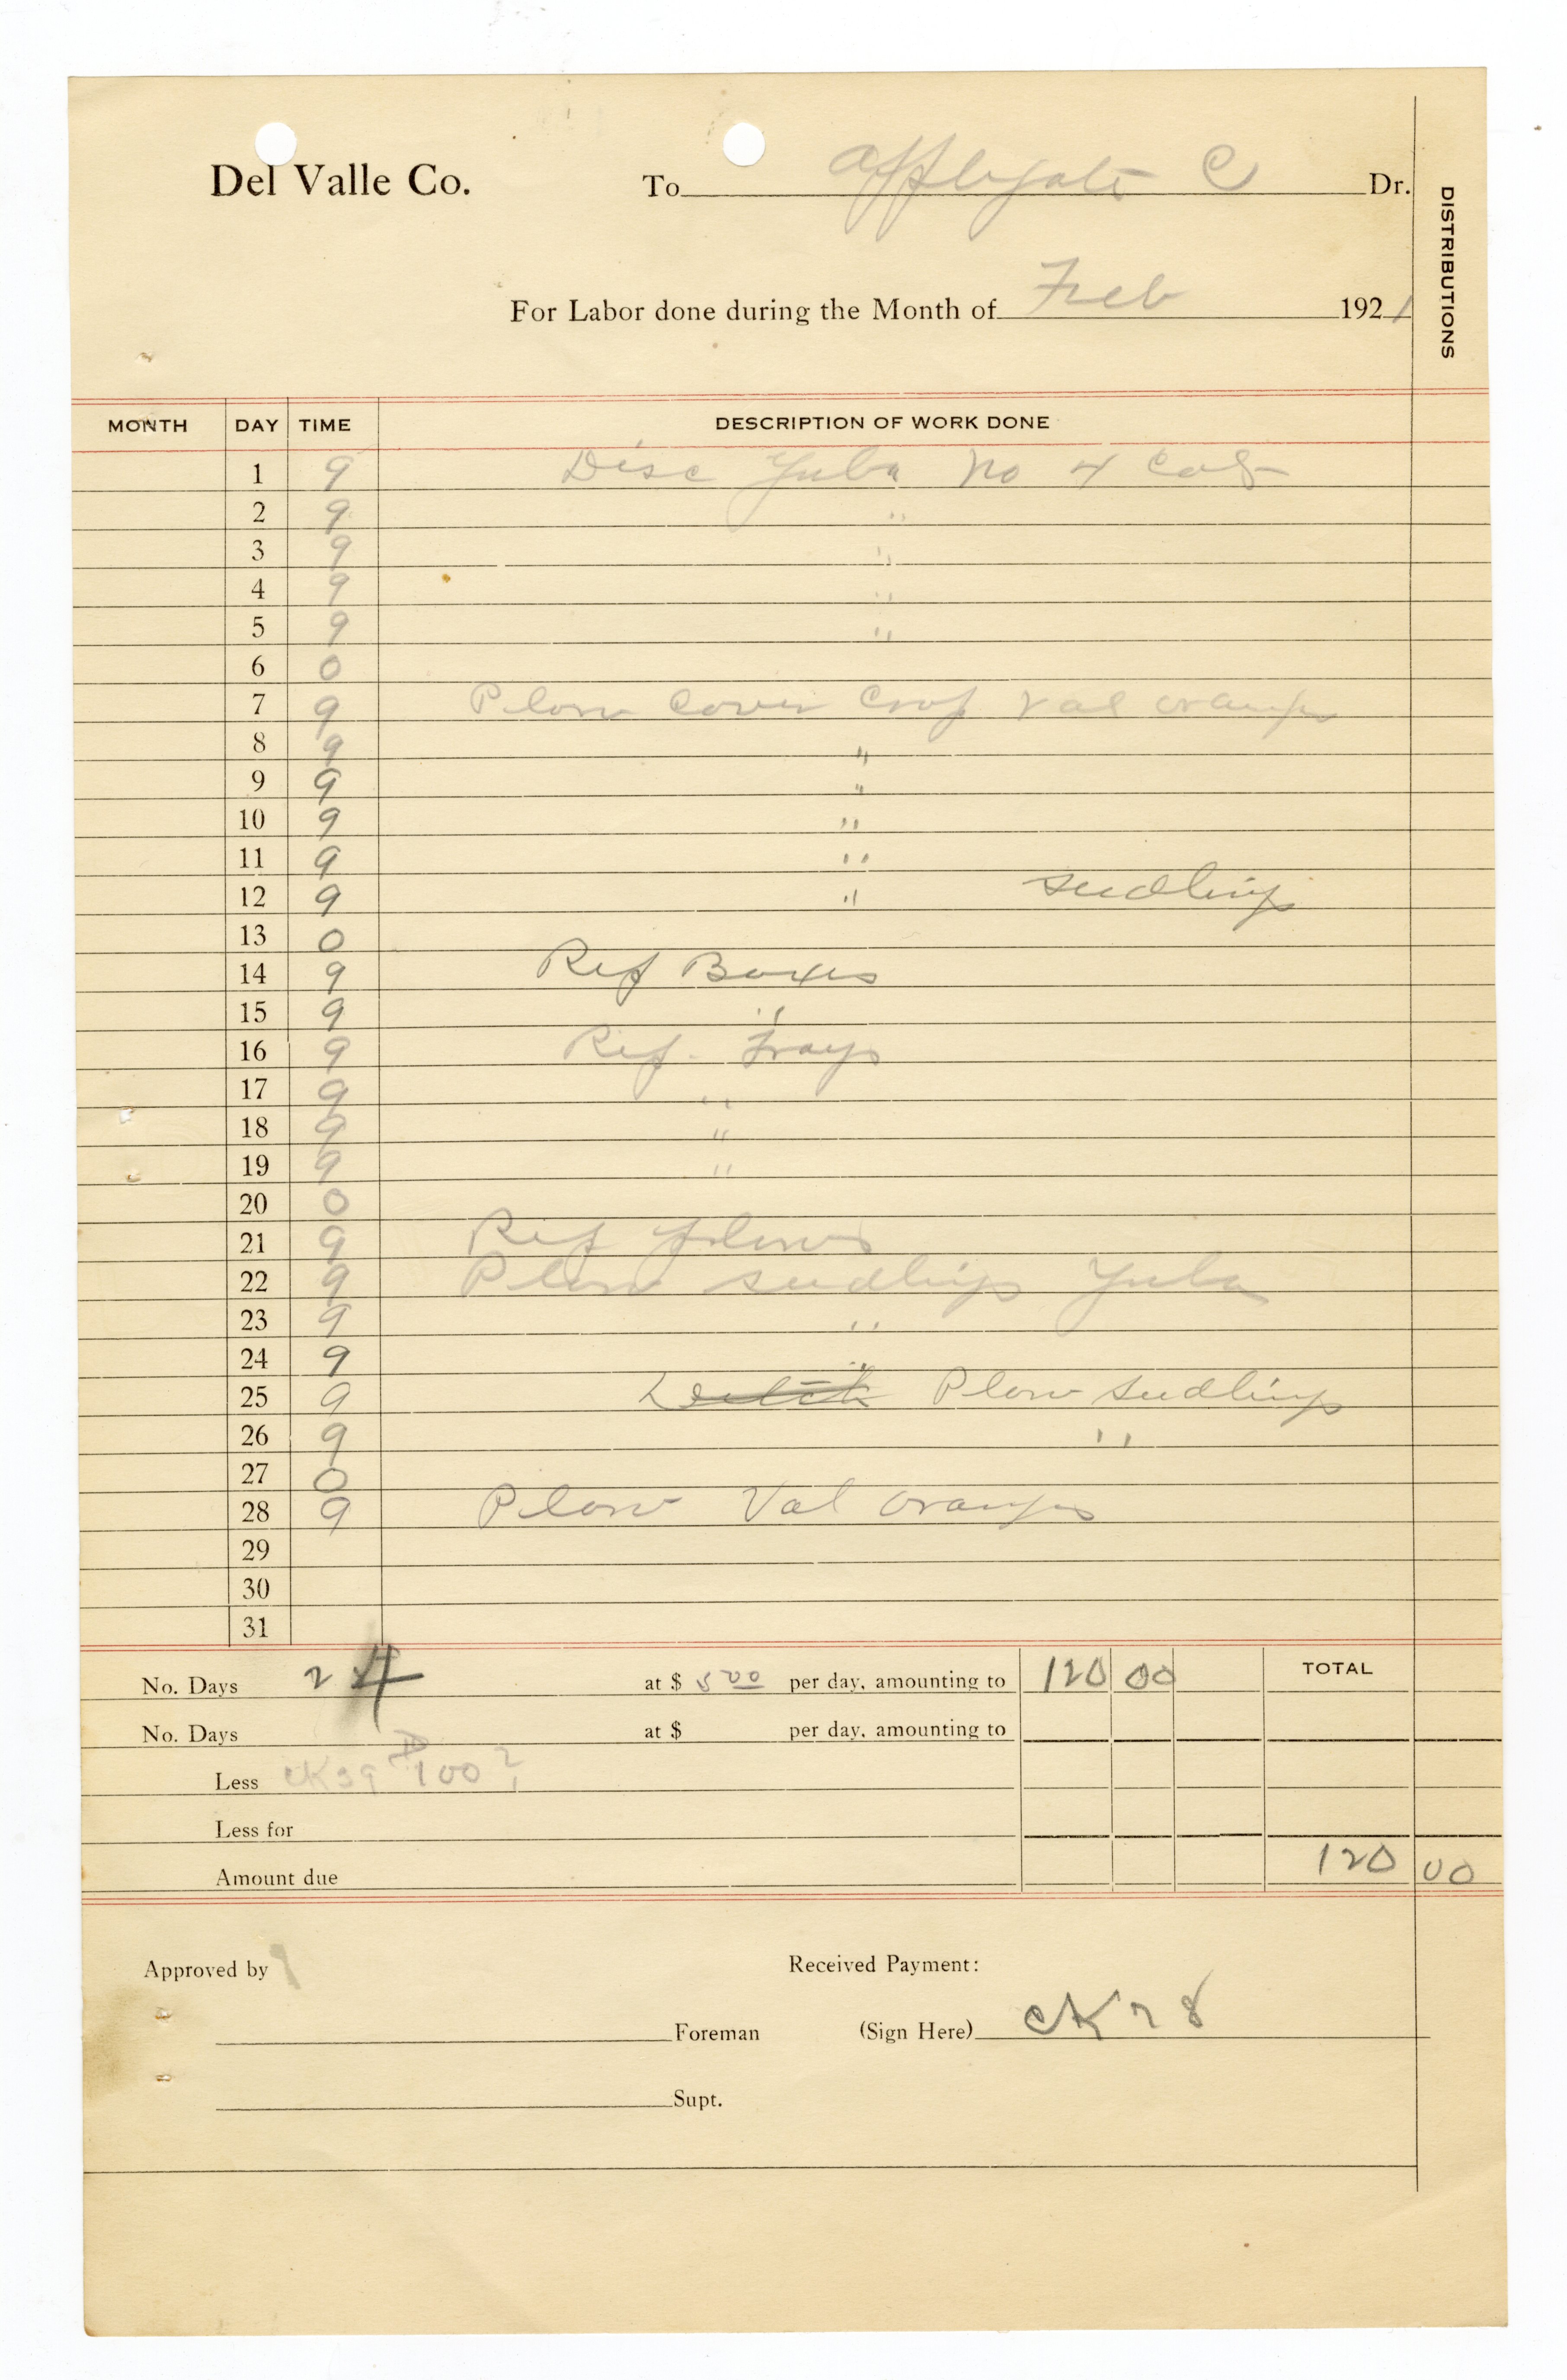 Del Valle Co. To Applegate C Dr.
DISTRIBUTIONS
For Labor done during the Month of Feb 1921
MONTH DAY TIME DESCRIPTION OF WORK DONE
1 9 Disc Yuba No 4
2 9 "
3 9 "
4 9 "
5 9 "
6 0
7 9 Plow Cover Crop Val oranges
8 9 "
9 9 "
10 9 "
11 9 "
12 9 " seedlings
13 0
14 9 Rep Boxes
15 9 "
16 9 Rep. Trays
17 9 "
18 9 "
19 9 "
20 0
21 9 Rep plows
22 9 Plow seedlings Yuba
23 9 "
24 9 "
25 9 Plow seedlings
26 9 "
27 0
28 9 Plow Val oranges
29
30
31
No. Days 24 at $ 5 00 per day, amounting to 120 00 TOTAL
No. Days at $ per day, amounting to
Less CK 39 100 ?
Less for
Amount due 120 00
Approved by Received Payment:
Foreman (Sign Here) CK 78
Supt.